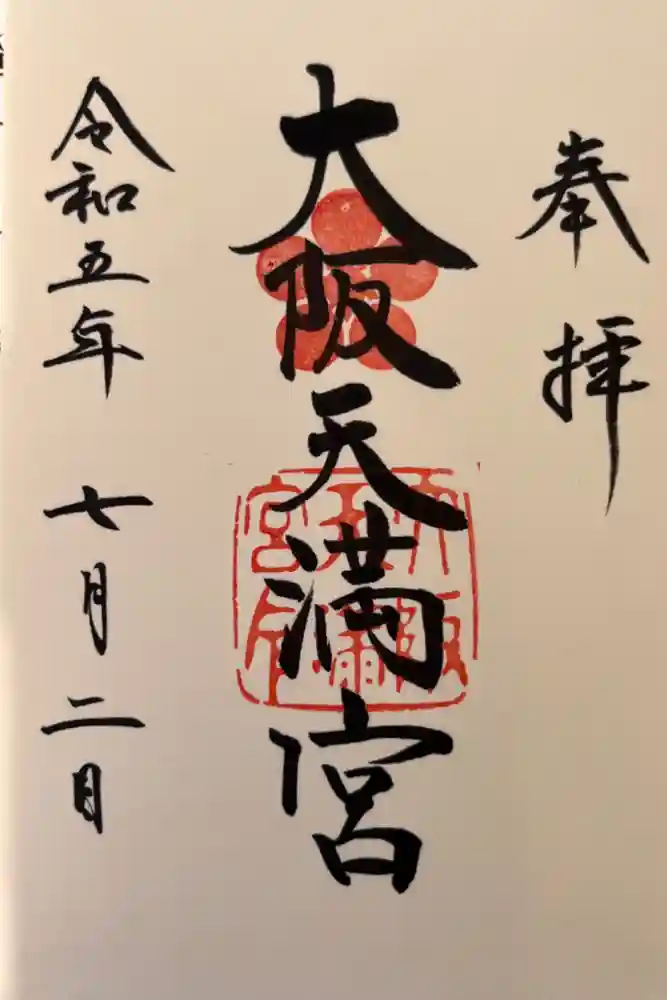 奉拝
大阪天満宮
大阪天満宮印
令和五年 七月二日